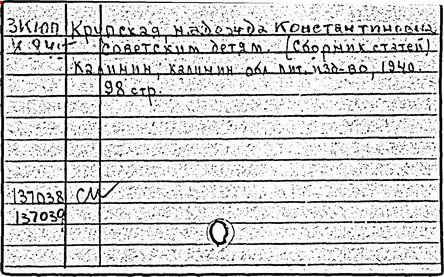 ЗКЮП Крупская, Надежда Константиновна
К 841 Советским детям. (Сборник статей)
Калинин, Калинин обл. лит. изд-во, 1940.
98 стр.
137038 СМ
137039